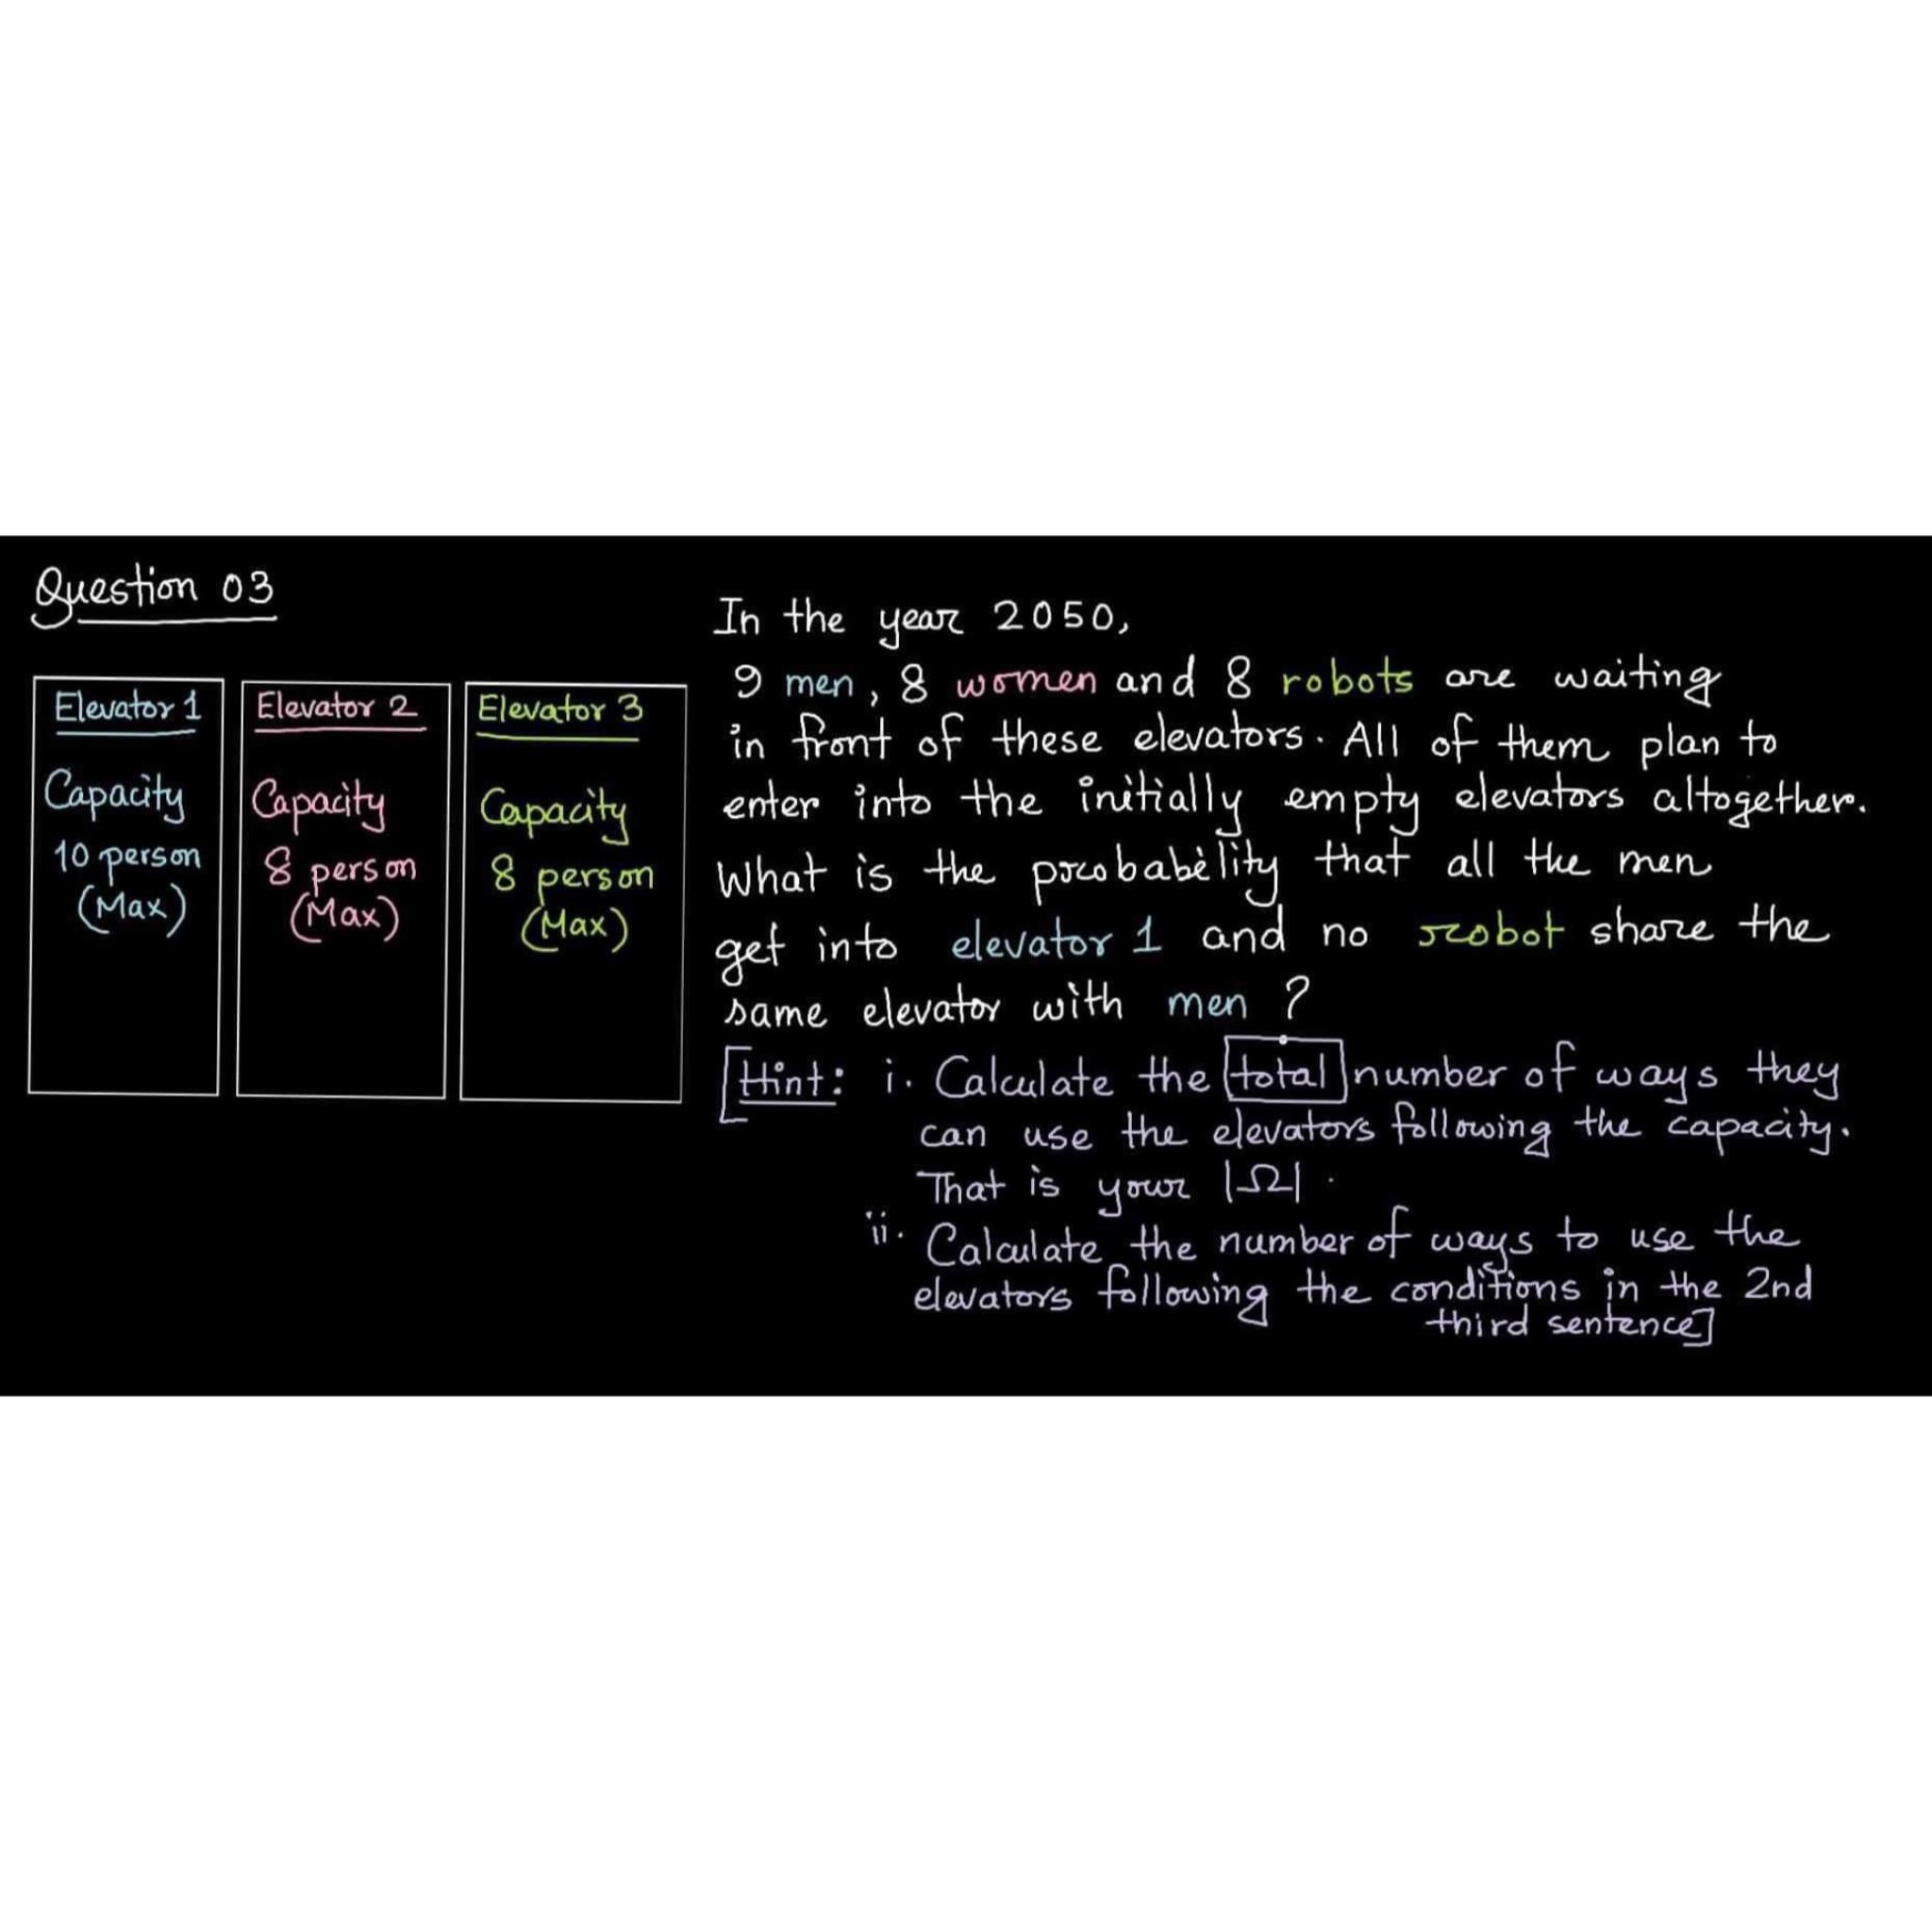 Question 03
Elevator 1
Capacity
10 person
(Max)
Elevator 2
Capacity
8 person
(Max)
Elevator 3
Capacity
8 person
(Max)
In the year 2050,
9 men, 8 women and 8 robots are waiting
in front of these elevators. All of them plan to
enter into the initially empty elevators altogether.
What is the probability that all the men
get into elevator 1 and no robot share the
same elevator with men ?
[Hint: i. Calculate the total number of ways they
can use the elevators following the capacity.
That is your |Ω|.
ii. Calculate the number of ways to use the
elevators following the conditions in the 2nd
third sentence]